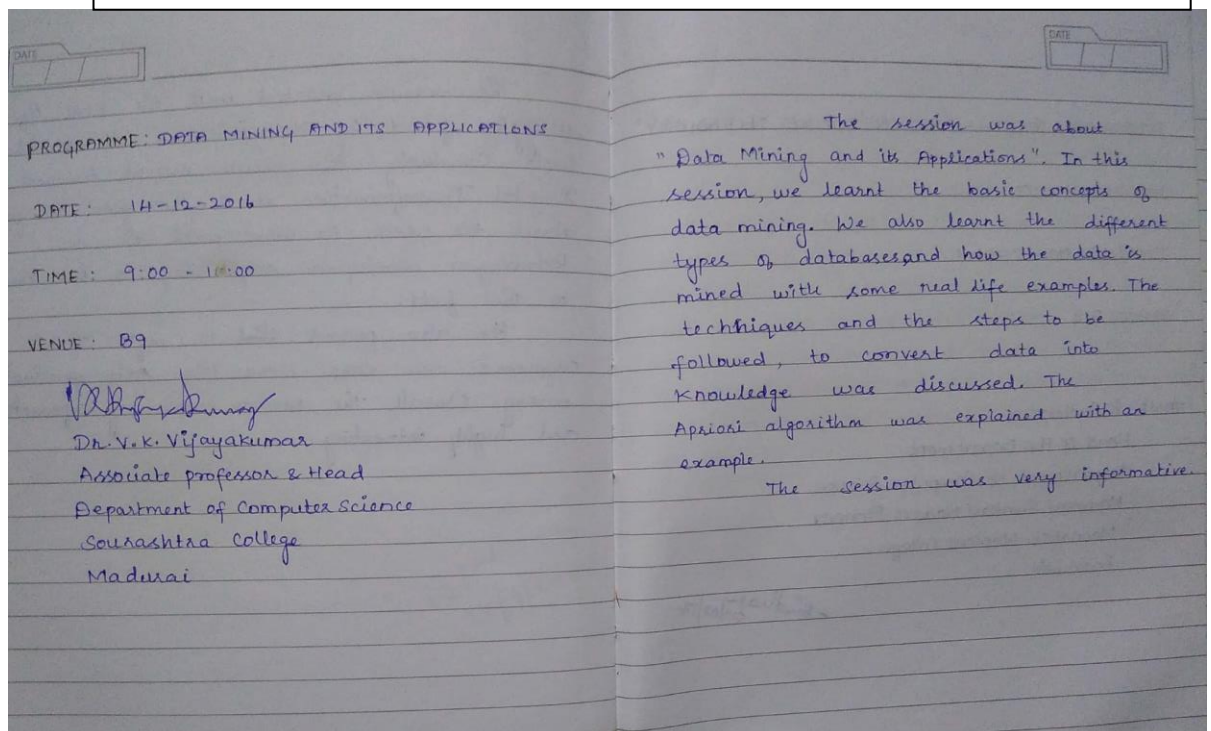 DATE
PROGRAMME: DATA MINING AND ITS APPLICATIONS
DATE: 14-12-2016
TIME: 9:00 - 10:00
VENUE: B9
Dr. V. K. Vijayakumar
Associate professor & Head
Department of Computer Science
Sourashtra College
Madurai
DATE
The session was about
"Data Mining and its Applications". In this
session, we learnt the basic concepts of
data mining. We also learnt the different
types of databases, and how the data is
mined with some real life examples. The
techniques and the steps to be
followed, to convert data into
knowledge was discussed. The
Apriori algorithm was explained with an
example.
The session was very informative.